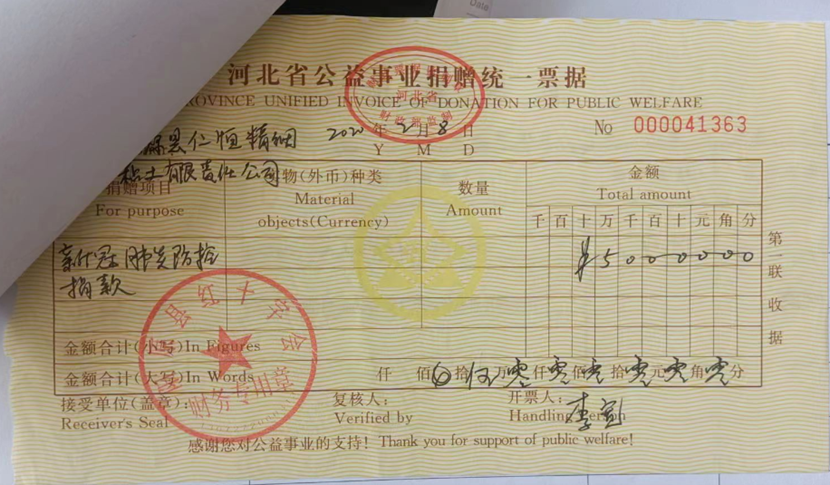 河北省公益事业捐赠统一票据
PROVINCE UNIFIED INVOICE OF DONATION FOR PUBLIC WELFARE
河北省
财政部监制
县仁恒精细 2020年2月8日 No 000041363
Y M D
粘土有限责任公司
捐赠项目 For purpose
物(外币)种类 Material objects(Currency)
数量 Amount
金额 Total amount
千 百 十 万 千 百 十 元 角 分
新代冠肺炎防控 ¥50000000
捐款
第一联 收据
金额合计(小写)In Figures
金额合计(大写)In Words 仟 佰 拾 伍万零仟零佰零拾零元零角零分
县红十字会
财务专用章
接受单位(盖章): 复核人: 开票人:
Receiver's Seal Verified by Handling Person
感谢您对公益事业的支持! Thank you for support of public welfare!
Date